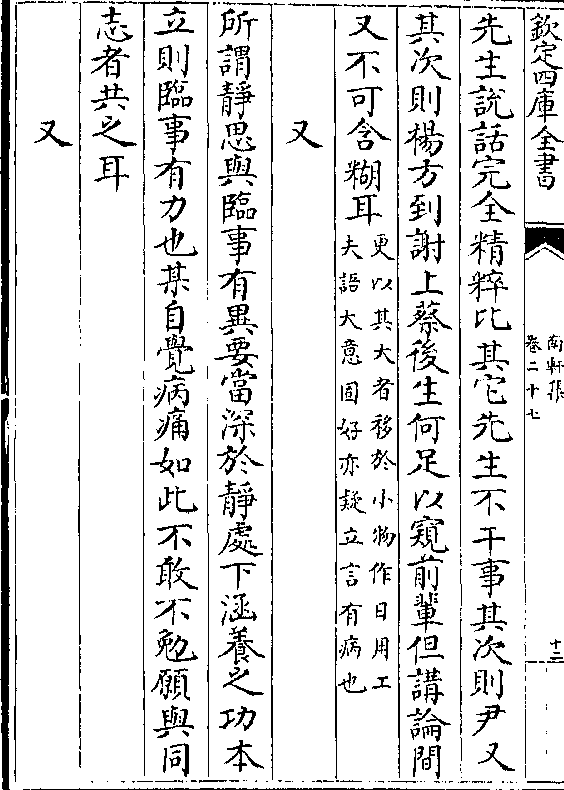 欽定四庫全書
南軒集
卷二十七
十二
先生說話完全精粹比其它先生不干事其次則尹又
其次則楊方到謝上蔡後生何足以窺前輩但講論間
又不可含糊耳更以其大者移於小物作日用工
夫語大意固好亦疑立言有病也
又
所謂靜思與臨事有異要當深於靜處下涵養之功本
立則臨事有力也某自覺病痛如此不敢不勉願與同
志者共之耳
又